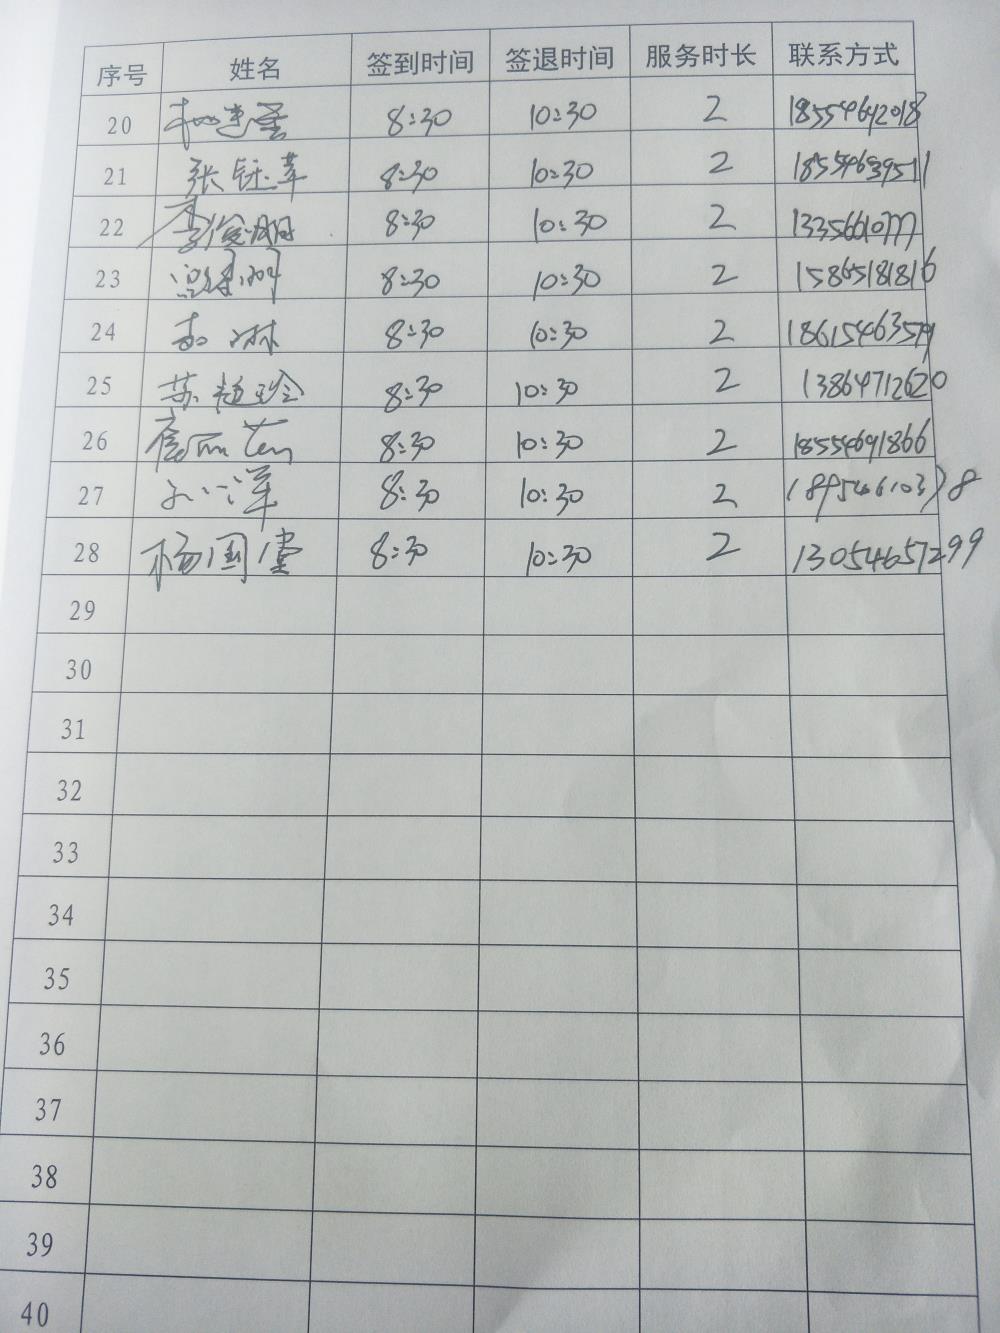 序号 姓名 签到时间 签退时间 服务时长 联系方式
20 8:30 10:30 2 18554642018
21 张钰苹 8:30 10:30 2 18554639511
22 李俊明 8:30 10:30 2
23 8:30 10:30 2 15865181816
24 8:30 10:30 2
25 苏超玲 8:30 10:30 2 13864712620
26 8:30 10:30 2 18554691866
27 8:30 10:30 2
28 杨国雪 8:30 10:30 2 13054657299
29
30
31
32
33
34
35
36
37
38
39
40